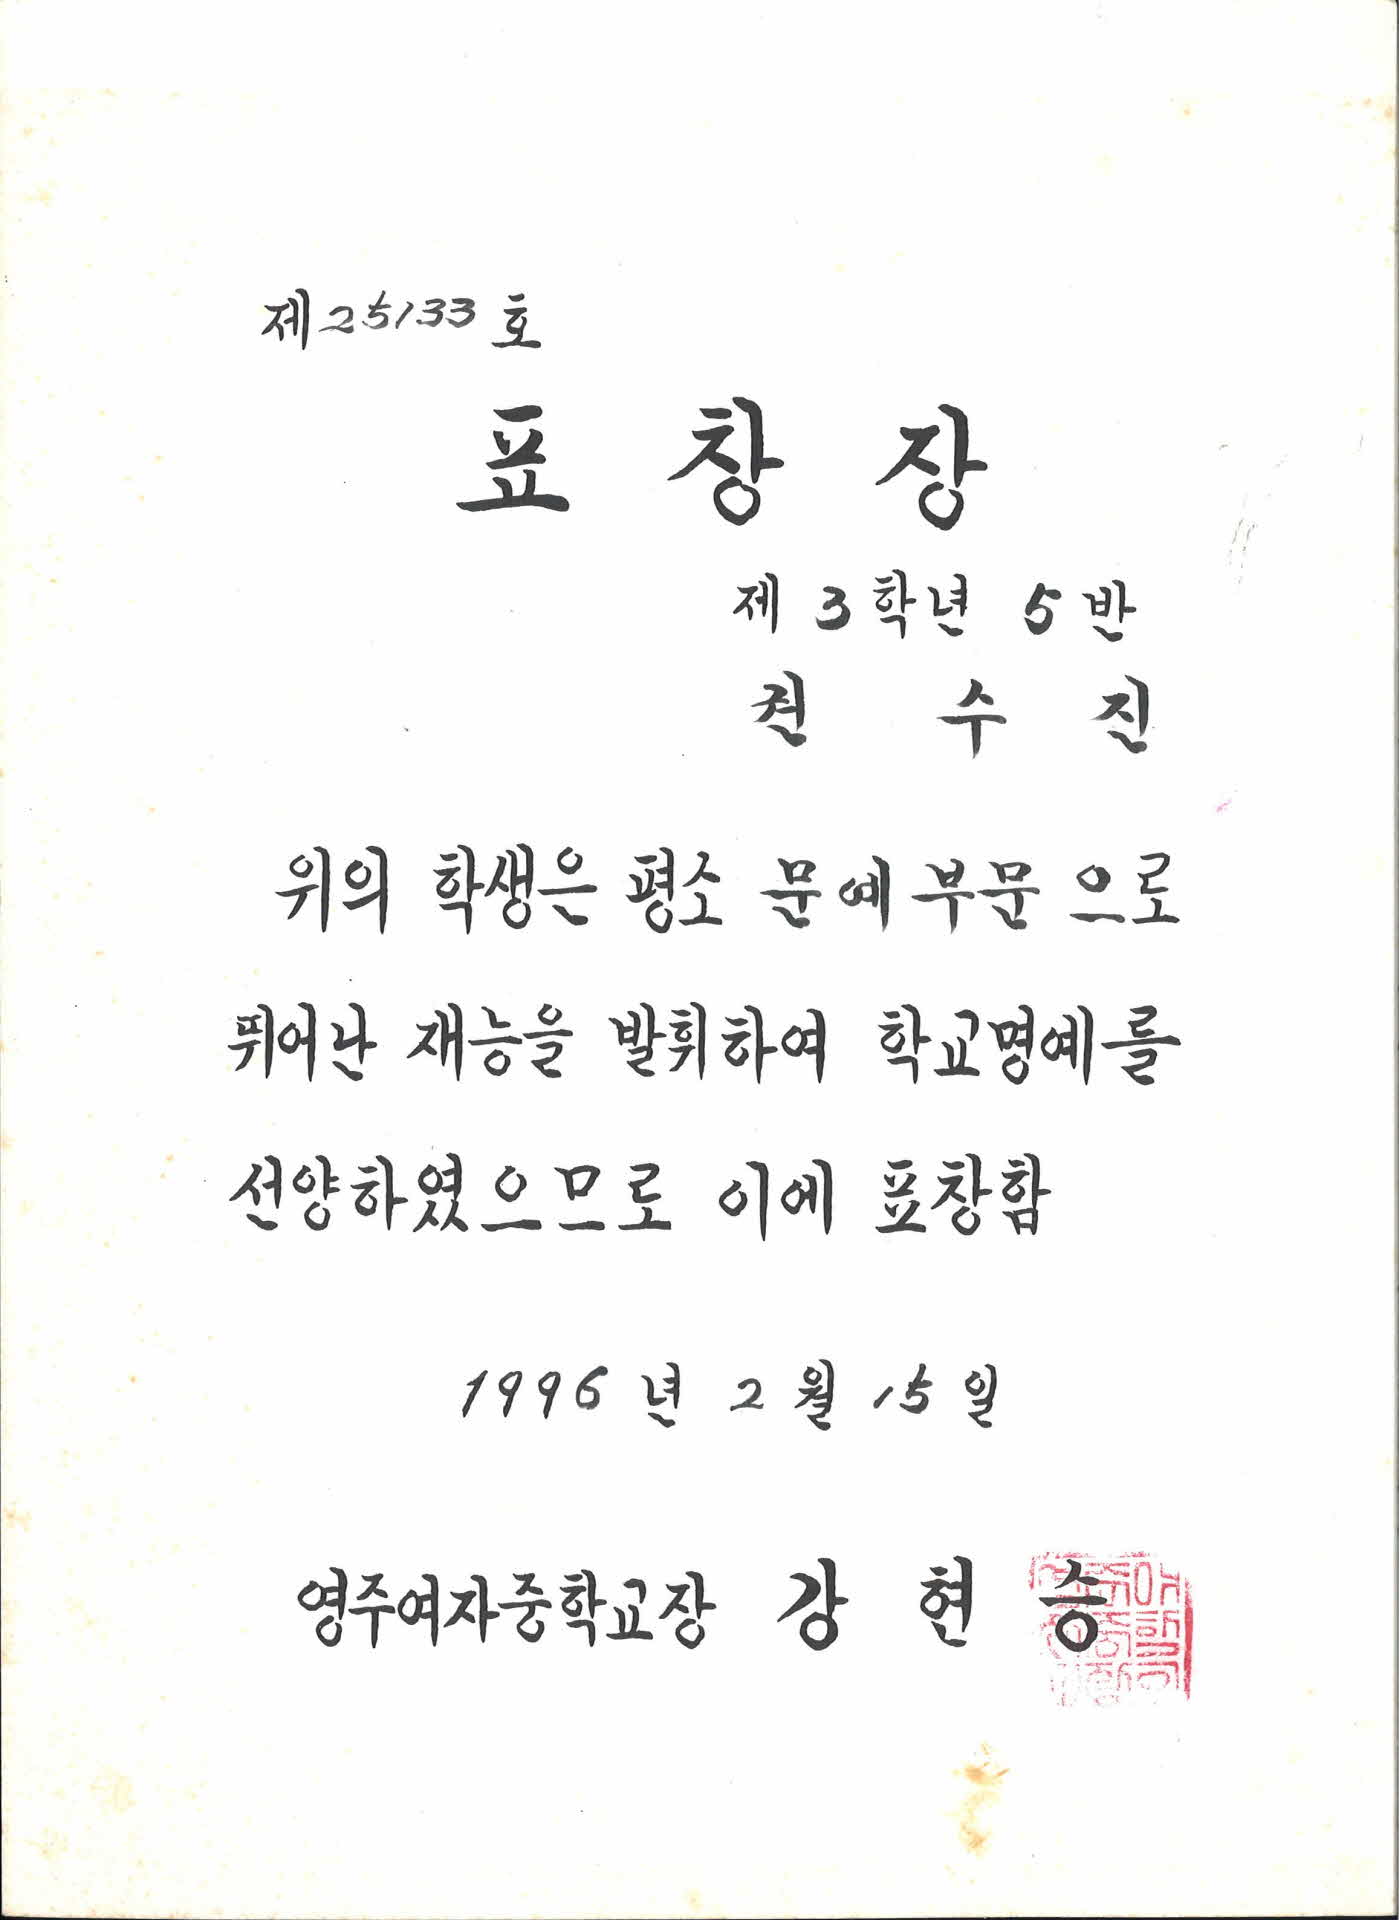 제25133호
표창장
제 3학년 5반
권수진
위의 학생은 평소 문예부문으로
뛰어난 재능을 발휘하여 학교명예를
선양하였으므로 이에 표창함
1996년 2월 15일
영주여자중학교장 강현승